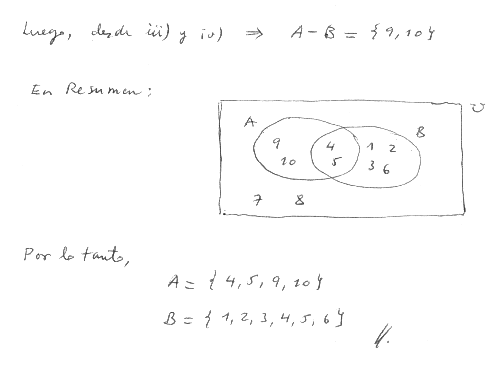 Luego, desde iii) y iv) ⇒ A-B = {9,10}
En Resumen:
U
A
B
9 4 1 2
10 5 3 6
7 8
Por lo tanto,
A = {4,5,9,10}
B = {1,2,3,4,5,6}
//.